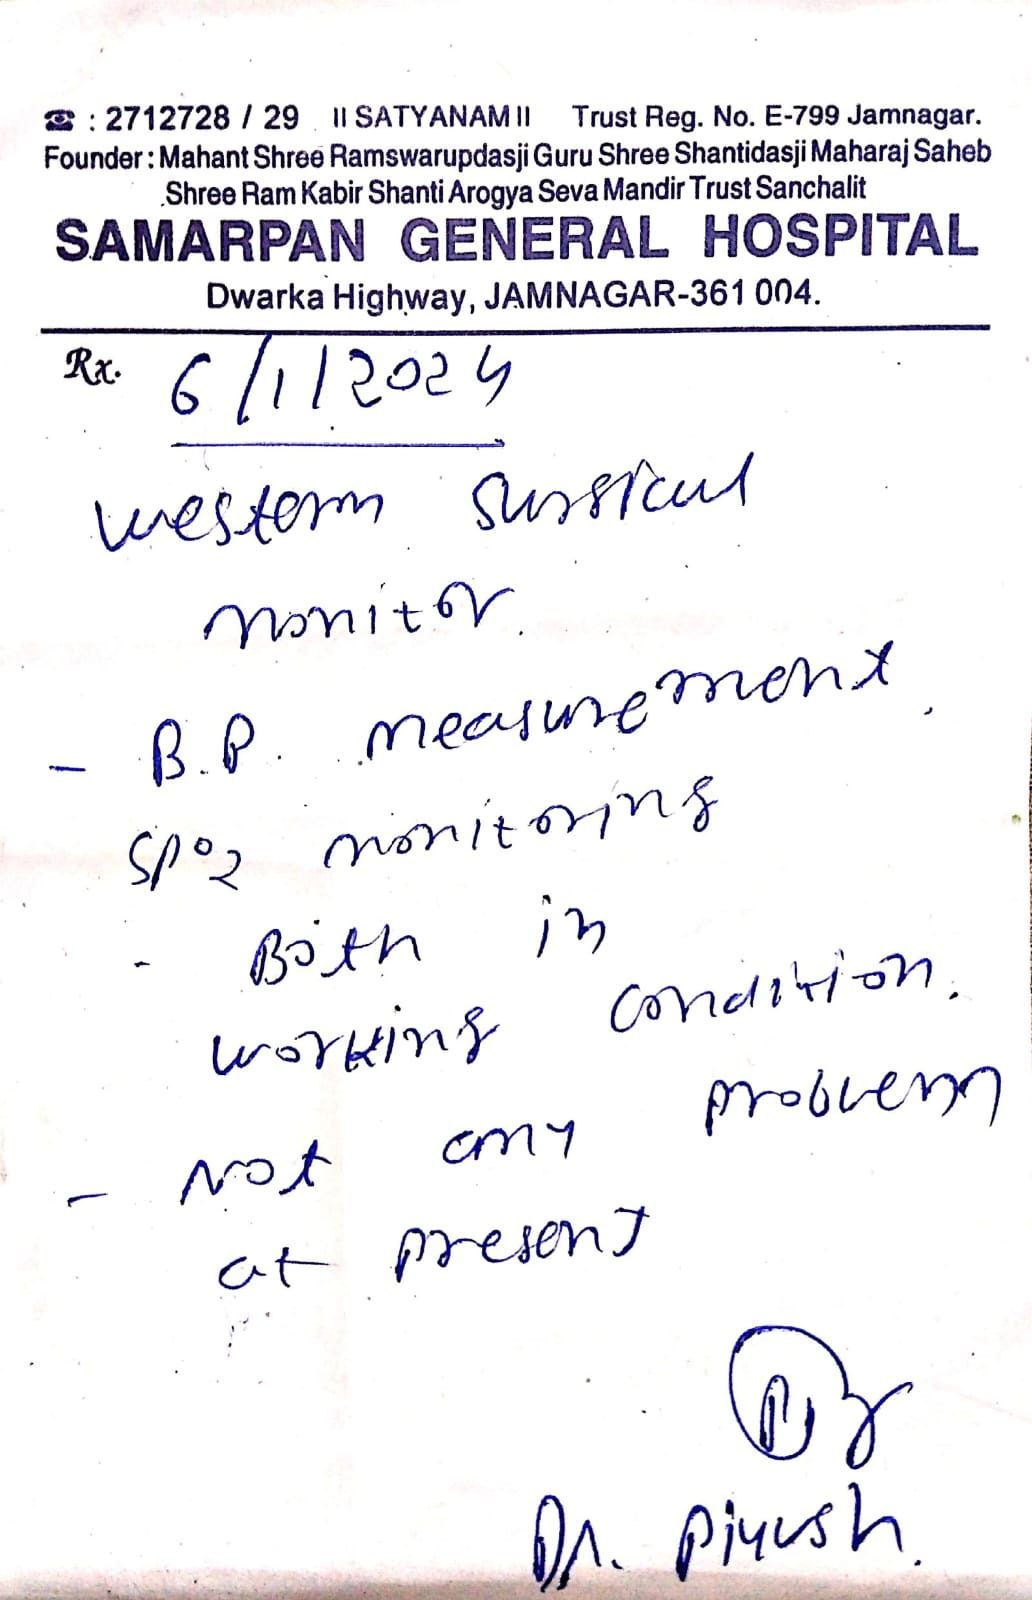 ☎ : 2712728 / 29 ॥ SATYANAM ॥ Trust Reg. No. E-799 Jamnagar.
Founder : Mahant Shree Ramswarupdasji Guru Shree Shantidasji Maharaj Saheb
Shree Ram Kabir Shanti Arogya Seva Mandir Trust Sanchalit
SAMARPAN GENERAL HOSPITAL
Dwarka Highway, JAMNAGAR-361 004.
Rx. 6/1/2024
western surgical
monitor.
- B.P. measurement.
SPO2 monitoring
- Both in
working condition.
- Not any problem
at present
Dr. Piyush.